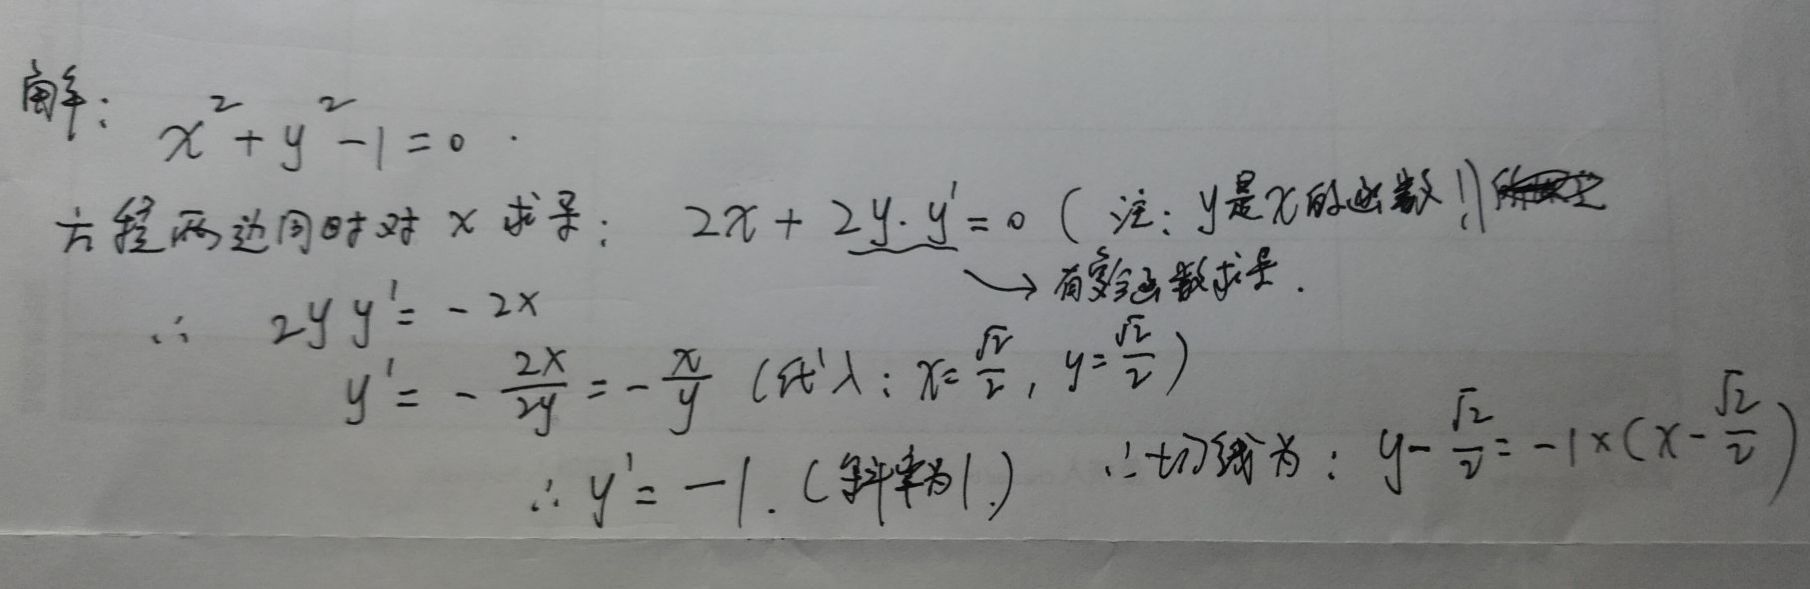 解: x² + y² - 1 = 0 .
方程两边同时对 x 求导: 2x + 2y·y' = 0 ( 注: y是x的函数!)
→ 有复合函数求导.
∴ 2y y' = - 2x
y' = - \frac{2x}{2y} = - \frac{x}{y} (代入: x= \frac{√2}{2}, y= \frac{√2}{2})
∴ y' = -1. (斜率为1.) ∴切线为: y - \frac{√2}{2} = -1×(x - \frac{√2}{2})